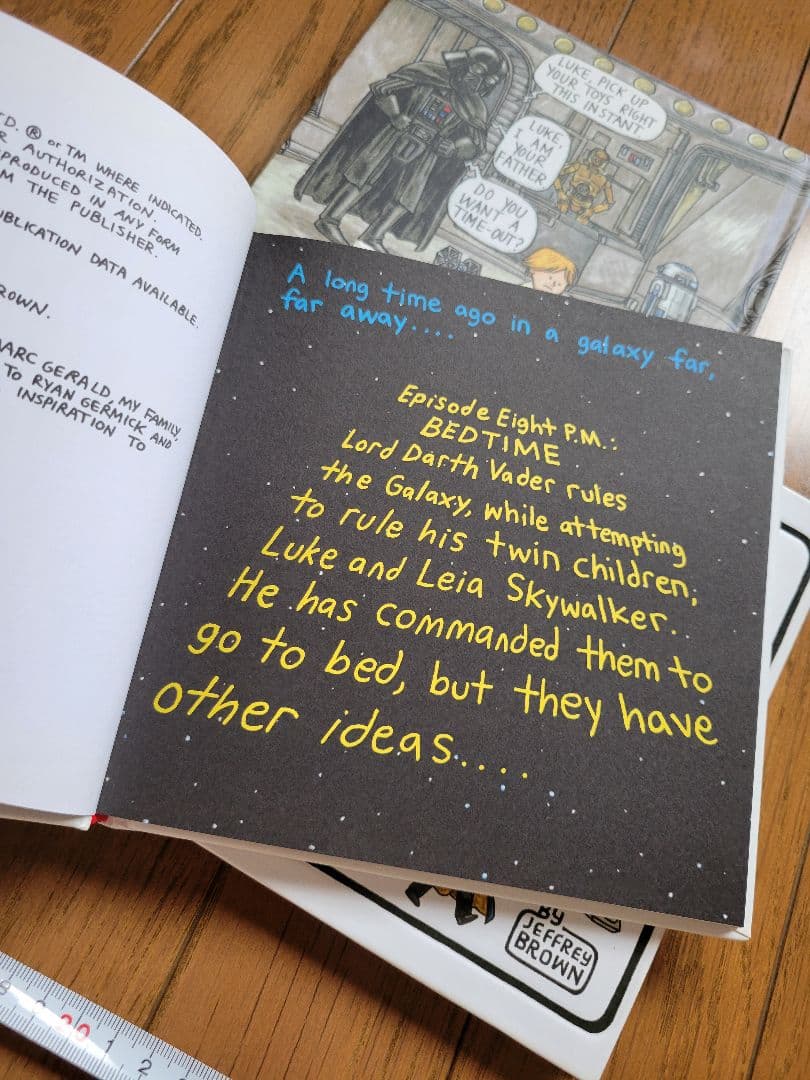 LUKE, PICK UP
YOUR TOYS RIGHT
THIS INSTANT
LUKE,
I AM
YOUR
FATHER
DO YOU
WANT A
TIME-OUT?
TD. ® or TM WHERE INDICATED.
AUTHORIZATION.
REPRODUCED IN ANY FORM
M THE PUBLISHER.
UBLICATION DATA AVAILABLE.
ROWN.
ARC GERALD, MY FAMILY,
TO RYAN GERMICK AND
INSPIRATION TO
A long time ago in a galaxy far,
far away....
Episode Eight P.M.:
BEDTIME
Lord Darth Vader rules
the Galaxy, while attempting
to rule his twin children,
Luke and Leia Skywalker.
He has commanded them to
go to bed, but they have
other ideas....
BY
JEFFREY
BROWN
20 1 2